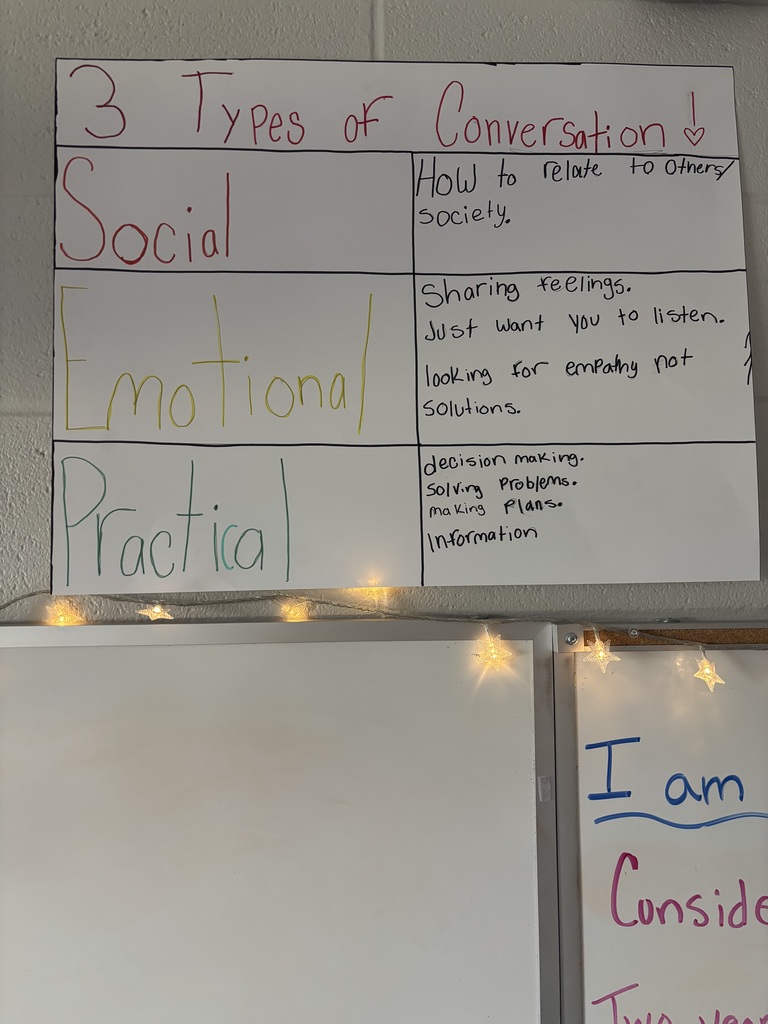 3 Types of Conversation!
Social
How to relate to others/
society.
Emotional
Sharing feelings.
Just want you to listen.
looking for empathy not
solutions.
Practical
decision making.
Solving Problems.
making Plans.
Information
I am
Conside
Two year